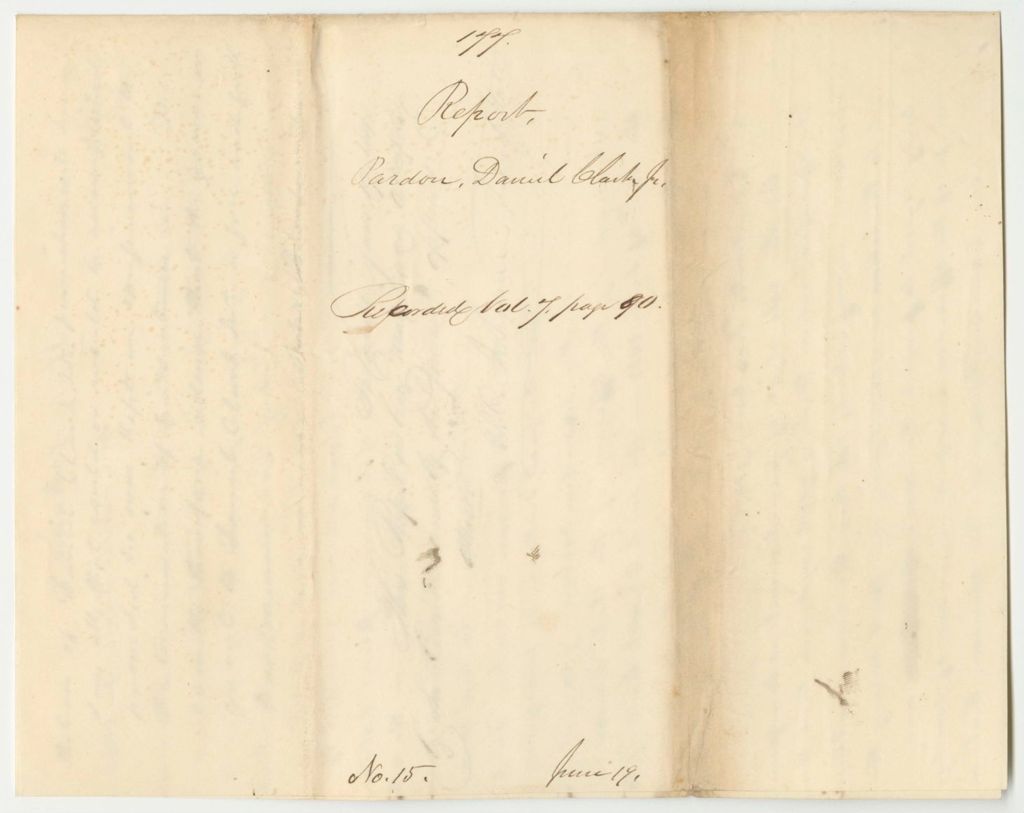 177.
Report,
Pardon, Daniel Clark Jr.
Recorded Vol. 7. page 90.
No. 15.
June 19.